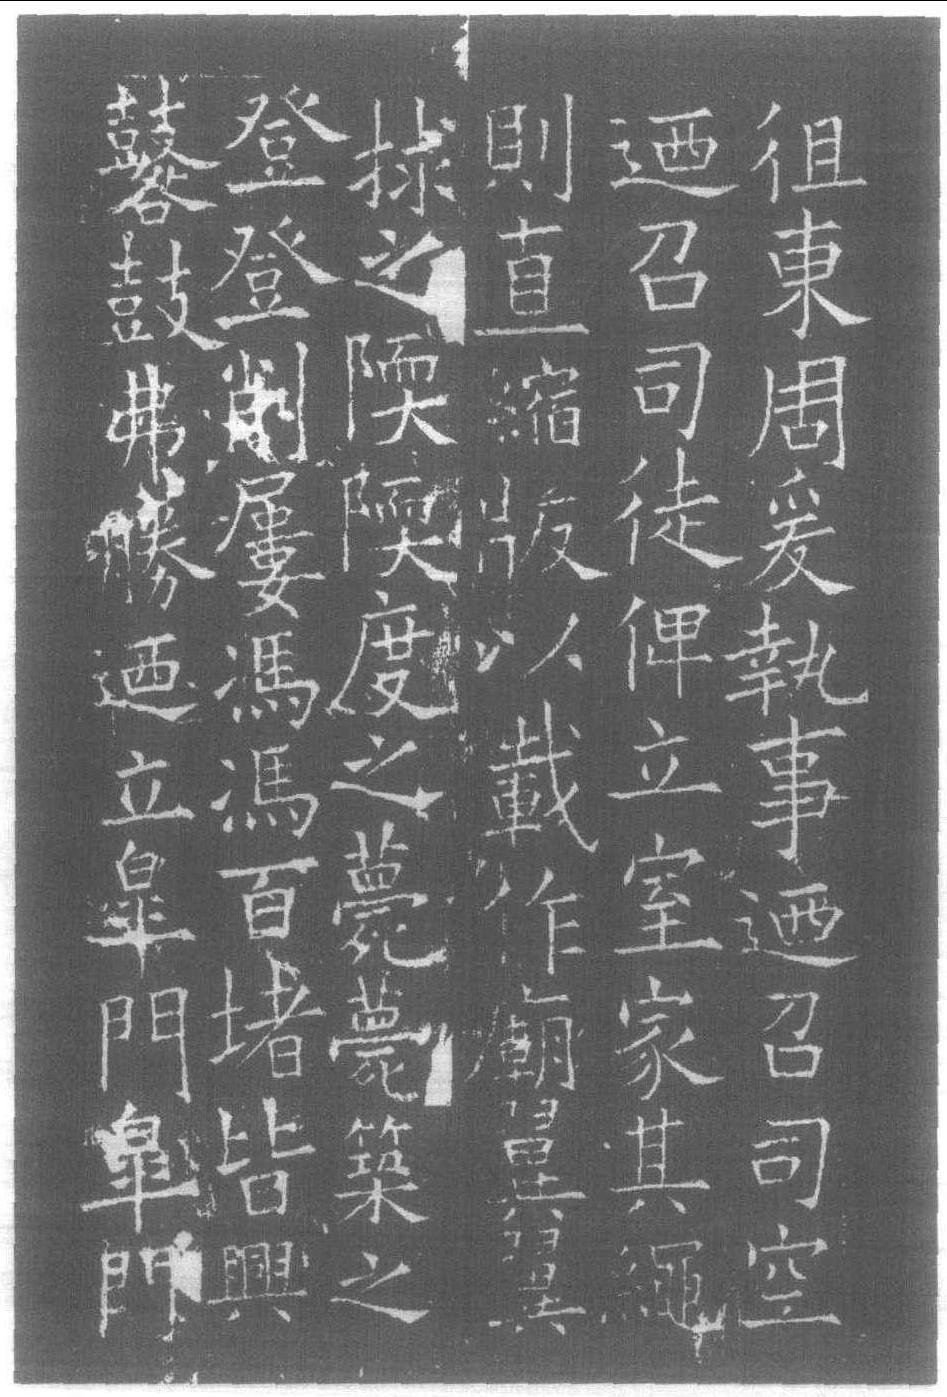 徂東周爰執事迺召司空
迺召司徒俾立室家其繩
則直縮版以載作廟翼翼
捄之陾陾度之薨薨築之
登登削屢馮馮百堵皆興
鼛鼓弗勝迺立皐門皐門